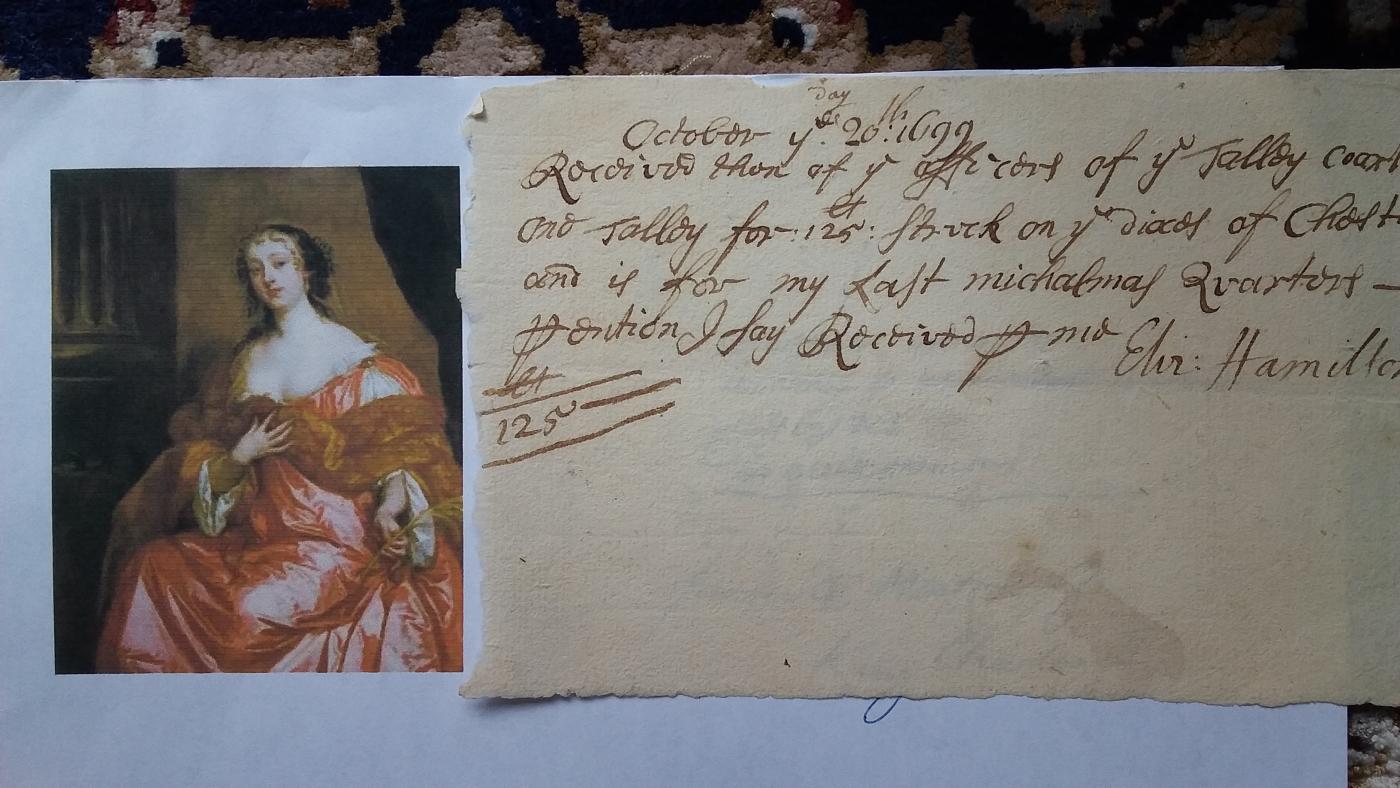 October yͤ. day 20ᵗʰ: 1699
Received then of yͤ officers of yͤ Talley Court
one Talley for: 125ˡᵗ: Struck on yͤ dices of Chest
and is for my Last michalmas Quarters —
pention I say Received p me Eliz: Hamilton
lt
125